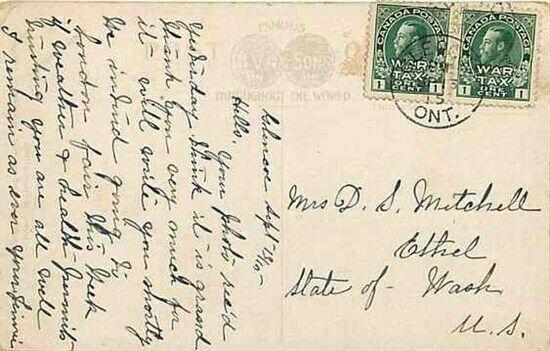 Glencoe Sept 13/15
Hello, Your photo rec'd
Yesterday think it is grand
Thank you very much for
it - will write you shortly
We intend going to
London fair this week
if weather & health permits
Trusting you are all well
I remain as ever your
FAMOUS
& SONS
THROUGHOUT THE WORLD
CANADA POSTAGE
WAR
TAX
1 CENT 1
CANADA POSTAGE
WAR
1 CENT 1
15
ONT.
Mrs D. S. Mitchell
Ethel
State of - Wash
U.S.